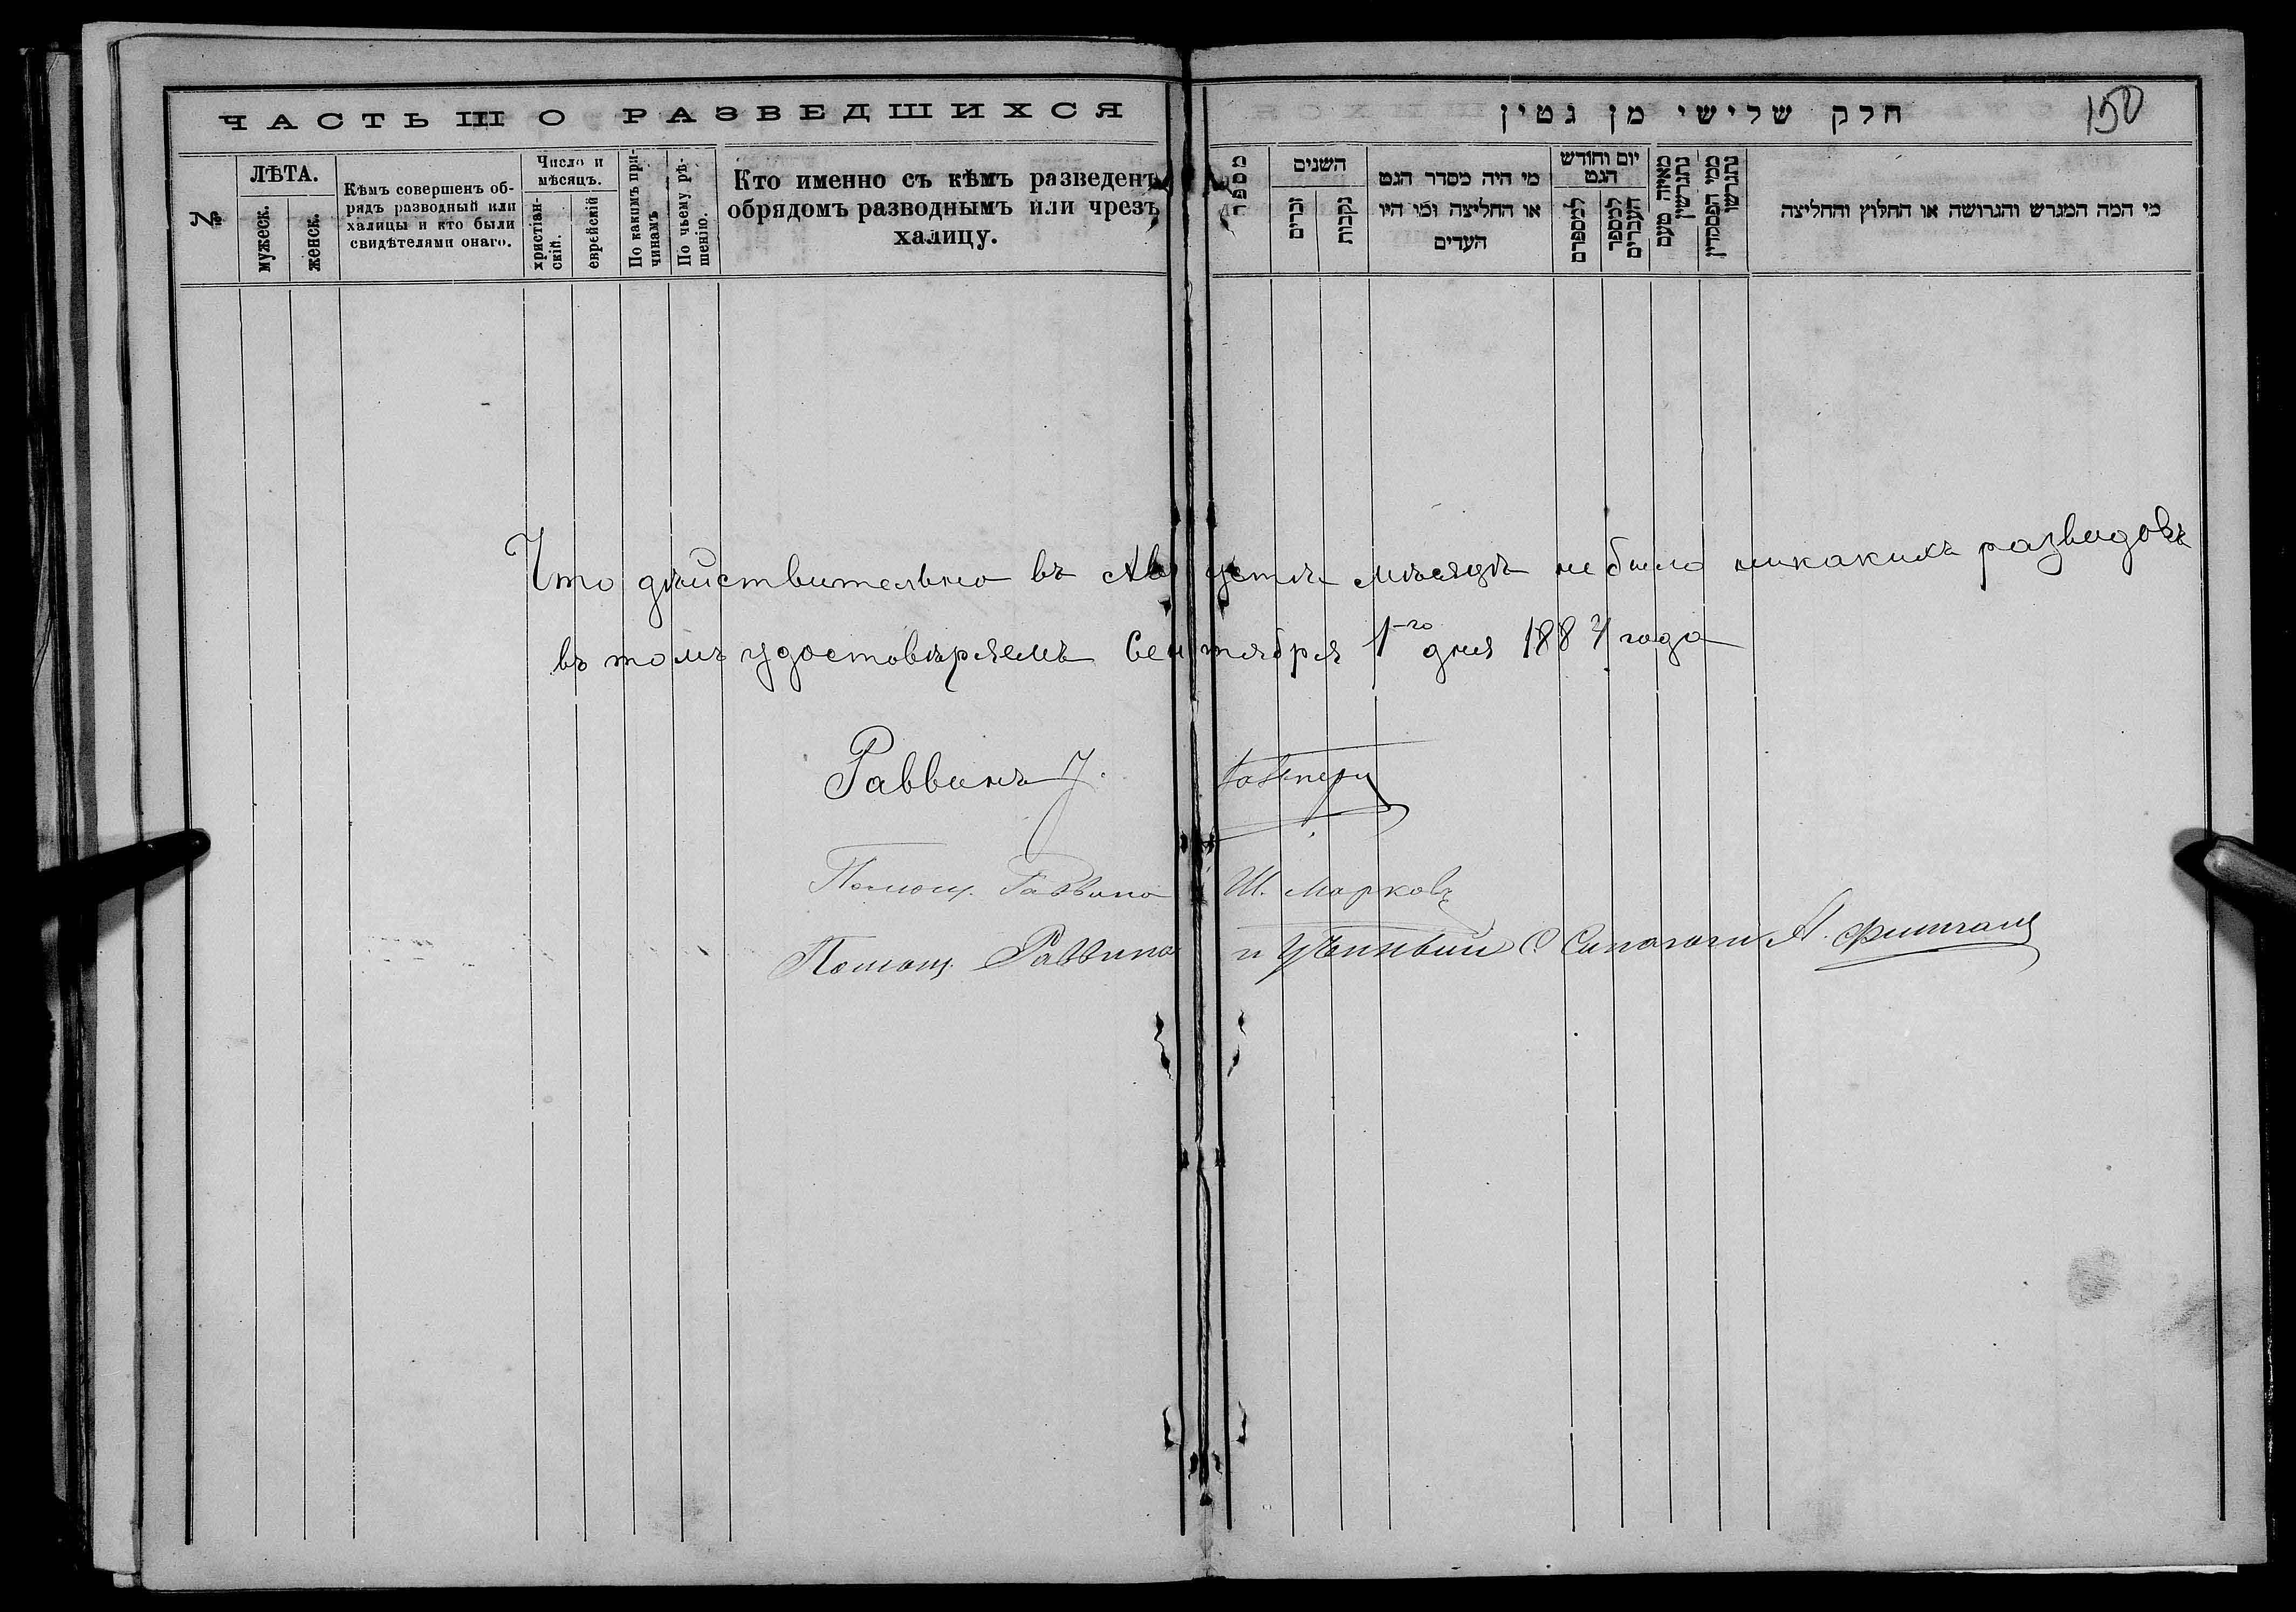 ЧАСТЬ III О РАЗВЕДШИХСЯ
№
ЛѢТА.
мужеск.
женск.
Кѣмъ совершенъ об-
рядъ разводный или
халицы и кто были
свидѣтелями онаго.
Число и
мѣсяцъ.
христіан-
скій.
еврейскій
По какимъ при-
чинамъ
По чьему рѣ-
шенію.
Кто именно съ кѣмъ разведенъ
обрядомъ разводнымъ или чрезъ
халицу.
חלק שלישי מן גטין
150
מספר
השנים
זכרים
נקבות
מי היה מסדר הגט
או החליצה ומי היו
העדים
יום וחודש
הגט
למספרם
למספר
העברים
מאיזה טעם
נתגרשו
מפי
נתגרשו
מי המה המגרש והגרושה או החלוץ והחליצה
Что дѣйствительно въ Августѣ мѣсяцѣ не было никакихъ разводовъ
въ томъ удостовѣряемъ Сентября 1-го дня 1887 года
Раввинъ
Помощ. Раввина Ш. Марковъ
Помощ. Раввина и Синагоги А.